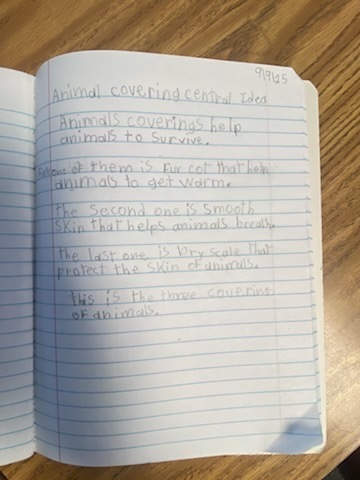 9/9/25
Animal covering central Idea
Animals coverings help
animals to survive.
of them is fur cot that help
animals to get warm.
the second one is smooth
skin that helps animals breath.
the last one is Dry scale that
protect the skin of animals.
this is the three covering
of animals.